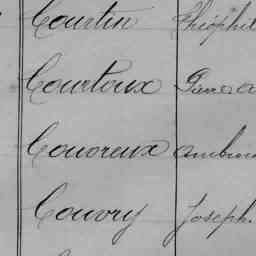 Courtin Théophil
Courtoux Pierre a
Couoreux Ambroi
Couvry Joseph.